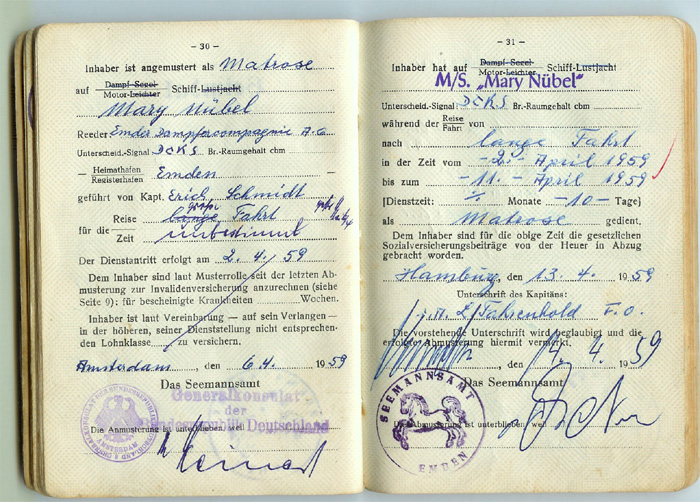 - 30 -
Inhaber ist angemustert als Matrose
auf Dampf-Segel- Motor-Leichter Schiff-Lustjacht
Mary Nübel
Reeder Emder Dampfercompagnie A.G.
Unterscheid.-Signal DCKS Br.-Raumgehalt cbm
Heimathafen Registerhafen Emden
geführt von Kapt. Erich Schmidt
für die Reise große Fahrt
Zeit unbestimmt
Der Dienstantritt erfolgt am 2. 4. / 59
Dem Inhaber sind laut Musterrolle seit der letzten
Abmusterung zur Invalidenversicherung anzurechnen (siehe
Seite 9): für bescheinigte Krankheiten Wochen.
Inhaber ist laut Vereinbarung — auf sein Verlangen —
in der höheren, seiner Dienststellung nicht entsprechen-
den Lohnklasse zu versichern.
Amsterdam, den 6.4. 1959
Das Seemannsamt
Generalkonsulat
der
Bundesrepublik Deutschland
Die Anmusterung ist unterblieben weil
AMSTERDAM
- 31 -
Inhaber hat auf Dampf-Segel- Motor-Leichter Schiff-Lustjacht
M/S. „Mary Nübel"
Unterscheid.-Signal DCKS Br.-Raumgehalt cbm
während der Reise Fahrt von
nach lange Fahrt
in der Zeit vom -2.- April 1959
bis zum -11.- April 1959
[Dienstzeit: Monate -10- Tage]
als Matrose gedient.
Dem Inhaber sind für die obige Zeit die gesetzlichen
Sozialversicherungsbeiträge von der Heuer in Abzug
gebracht worden.
Hamburg, den 13. 4. 1959
Unterschrift des Kapitäns:
Fahrenhold F.O.
Die vorstehende Unterschrift wird beglaubigt und die
erfolgte Abmusterung hiermit vermerkt.
, den 14. 4. 1959
Das Seemannsamt
SEEMANNSAMT
EMDEN
Die Abmusterung ist unterblieben weil